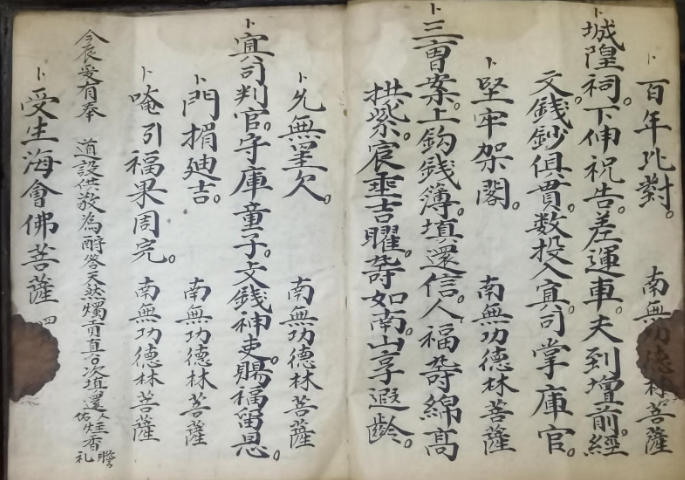 卜百年比對。 南無功德林菩薩
卜城隍祠。下伸祝告。差運車。夫到壇前。經
文。錢鈔俱貫。数投入冥司掌庫官。
卜堅牢架閣。 南無功德林菩薩
卜三曹案。上鈎錢簿。填還信。人福夀綿高
拱紫宸垂吉曜。夀如南。山享遐齡。
卜免無星欠。 南無功德林菩薩
卜冥司判官。子庫童子。文錢神吏。賜福留恩。
卜門楣廸吉。 南無功德林菩薩
卜唵引福果周完。 南無功德林菩薩
今辰爰有奉 道設供敬為酧答天然燭貢真香次填還人 佑 炷香 礼
卜受生海會佛菩薩 四